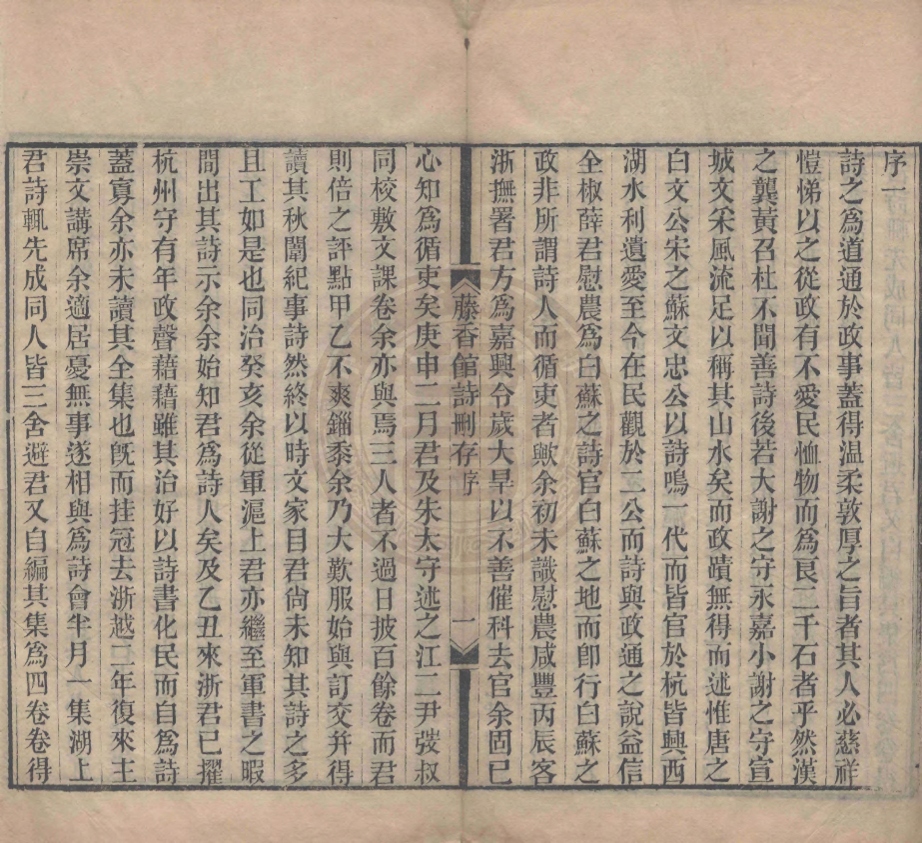 序一
詩之爲道通於政事蓋得温柔敦厚之旨者其人必慈祥
愷悌以之從政有不愛民恤物而爲良二千石者乎然漢
之龔黃召杜不聞善詩後若大謝之守永嘉小謝之守宣
城文采風流足以稱其山水矣而政蹟無得而述惟唐之
白文公宋之蘇文忠公以詩鳴一代而皆官於杭皆興西
湖水利遺愛至今在民觀於二公而詩與政通之說益信
全椒薛君慰農爲白蘇之詩官白蘇之地而卽行白蘇之
政非所謂詩人而循吏者歟余初未識慰農咸豐丙辰客
浙撫署君方爲嘉興令歲大旱以不善催科去官余固已
藤香館詩刪存 序 一
心知爲循吏矣庚申二月君及朱太守述之江二尹弢叔
同校敷文課卷余亦與焉三人者不過日披百餘卷而君
則倍之評點甲乙不爽錙黍余乃大歎服始與訂交幷得
讀其秋闈紀事詩然終以時文家目君尙未知其詩之多
且工如是也同治癸亥余從軍滬上君亦繼至軍書之暇
間出其詩示余余始知君爲詩人矣及乙丑來浙君已擢
杭州守有年政聲藉藉雖其治好以詩書化民而自爲詩
蓋寡余亦未讀其全集也旣而挂冠去浙越二年復來主
崇文講席余適居憂無事遂相與爲詩會半月一集湖上
君詩輒先成同人皆三舍避君又自編其集爲四卷卷得